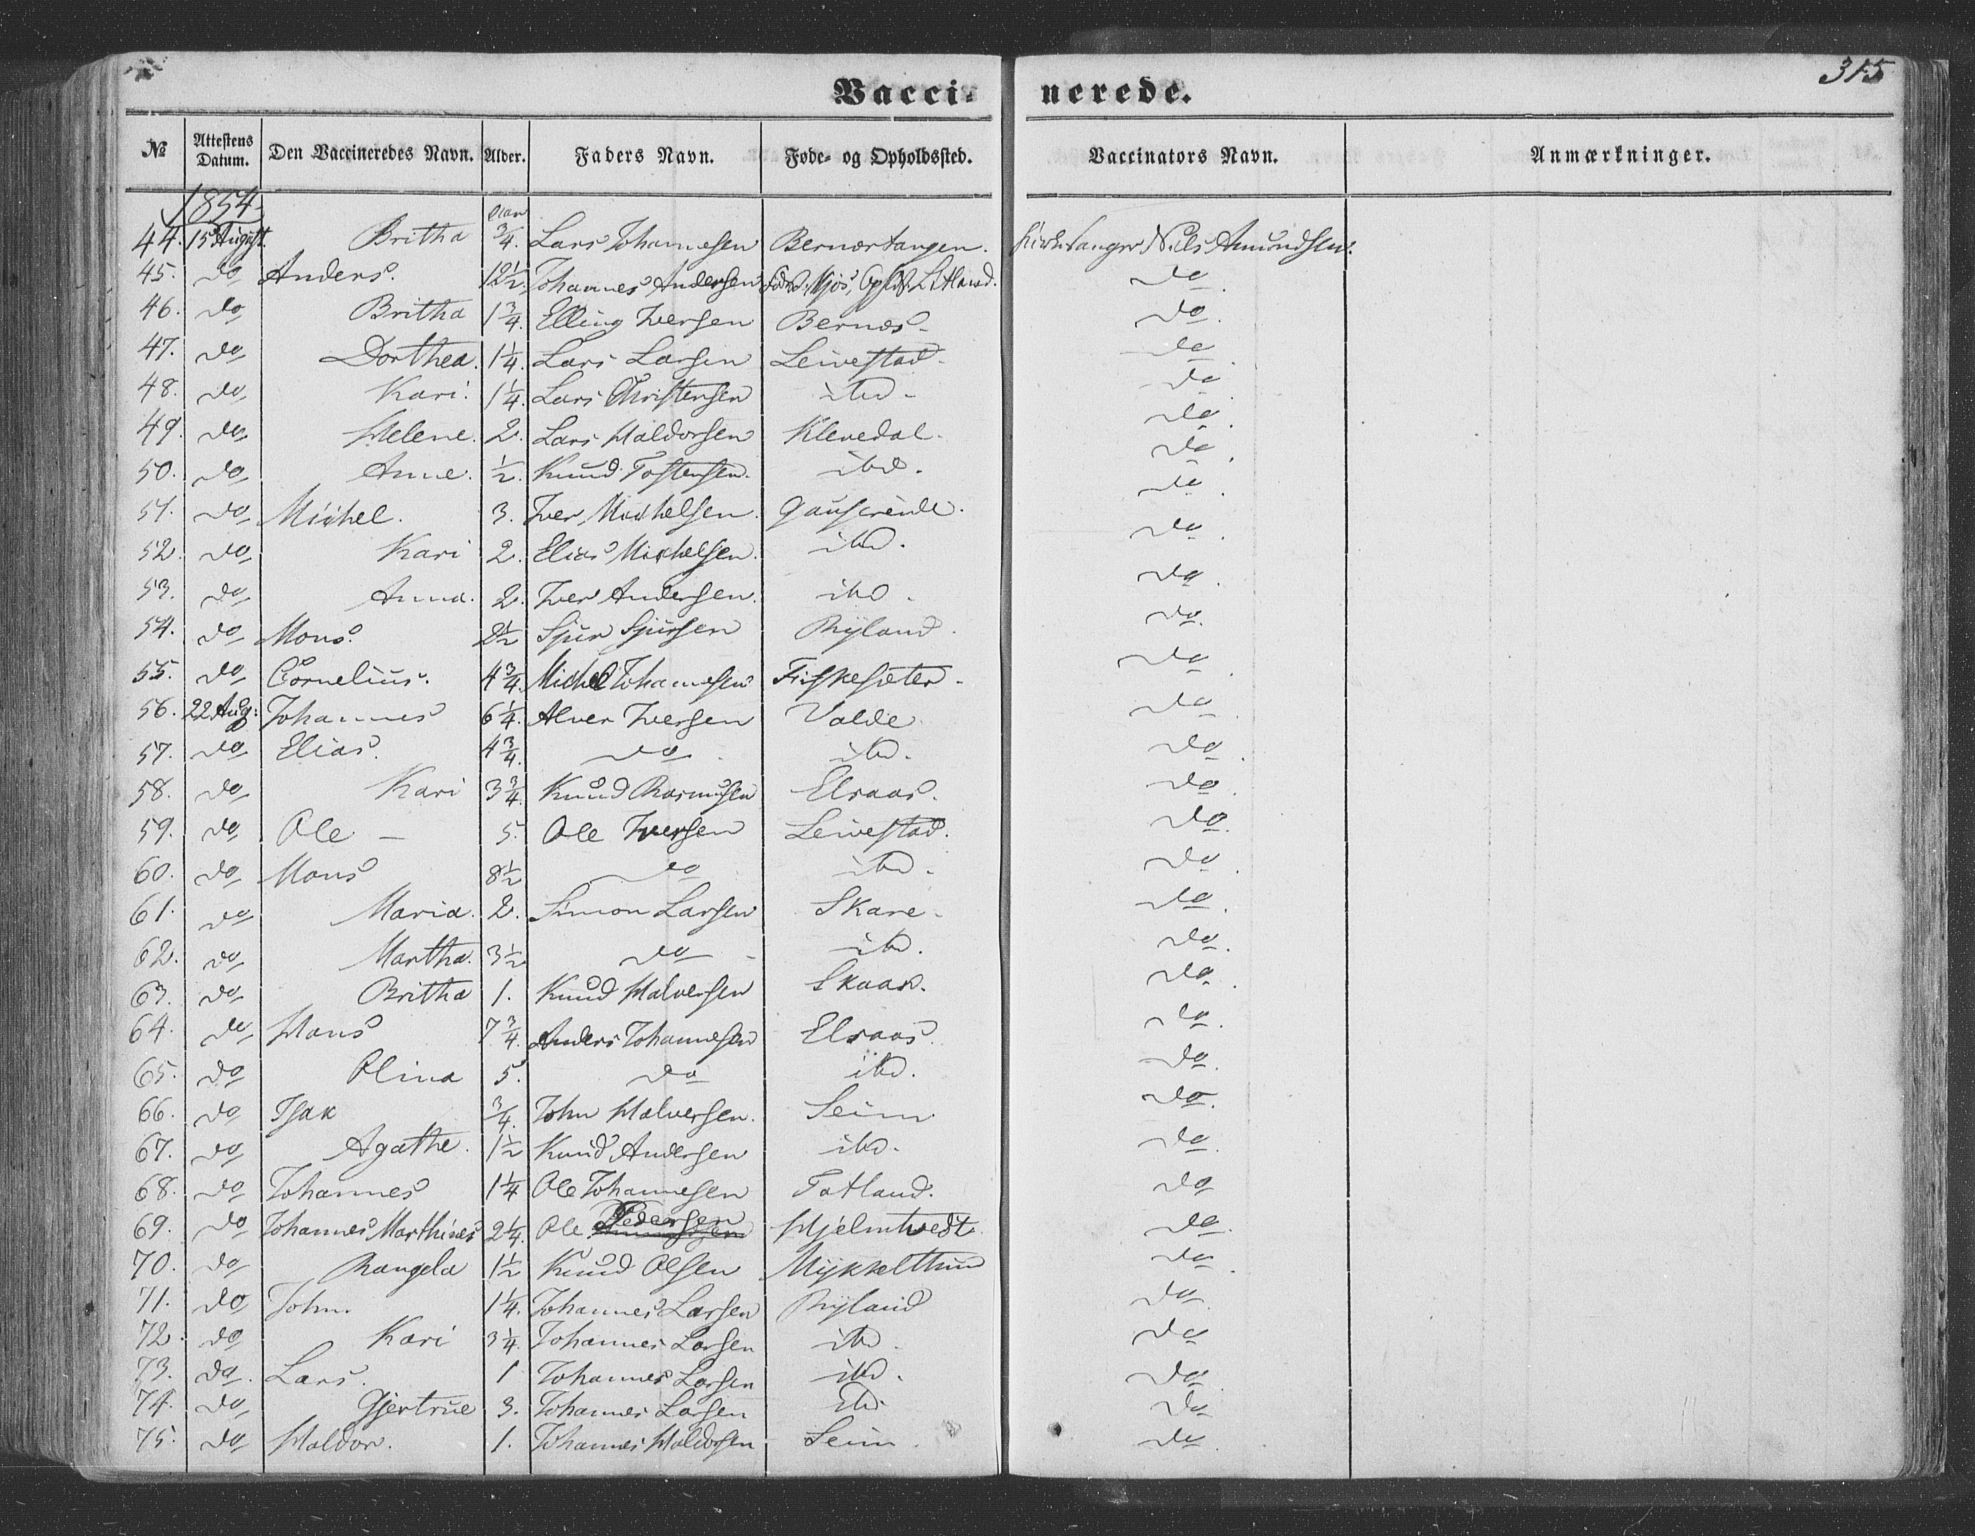 315
Vaccinerede.
№ Attestens Datum. Den Vaccineredes Navn. Alder. Faders Navn. Føde- og Opholdssted. Vaccinators Navn. Anmærkninger.
1854
44. 15 August. Britha 3/4. Lars Johannesen Bernærtangen. Kirkesanger Niels Amundsen.
45. do Anders. 12 1/2. Johannes Andersen Mjøs, Litland. do
46. do Britha 1 3/4. Elling Iversen Bernæs do
47. do Dorthea. 1 1/4. Lars Larsen Leivestad do
48. do Kari. 1 1/4. Lars Christensen ibd do
49. do Helene. 2. Lars Haldorsen Klevedal. do
50. do Anne. 1/2. Knud Tostensen. ibd. do
51. do Michel. 3. Iver Michelsen. Gausereide. do
52. do Kari 2. Elias Michelsen. ibd. do
53. do Anna. 2. Iver Andersen. ibd. do
54. do Mons. 2 1/2 Sjur Sjursen Ryland. do
55. do Cornelius. 4 3/4. Michel Johannesen Fiskesæter. do
56. 22 Aug: Johannes 6 1/4. Alver Iversen Valde do
57. do Elias. 4 3/4. do ibd. do
58. do Kari 3 3/4. Knud Rasmusen Elsaas. do
59. do Ole — 5. Ole Iversen Leivestad. do
60. do Mons 8 1/2 do ibd. do
61. do Maria. 2. Simon Larsen Skare. do
62. do Martha. 3 1/2 do ibd. do
63. do Britha 1. Knud Halversen Skaar. do
64. do Hans 7 3/4. Anders Johannesen Elsaas. do
65. do Olina 5. do ibd. do
66. do Isak 3/4. John Halversen. Seim do
67. do Agathe. 1 1/2 Knud Andersen ibd. do
68. do Johannes 1 1/4 Ole Johannesen Totland. do
69. do Johannes Marthinus 2 1/4. Ole Pedersen Hjelmtvedt. do
70. do Rangela 1 1/2 Knud Olsen Mykkelthun do
71. do John. 1 1/4. Johannes Larsen Ryland do
72. do Kari 3 1/4. Johannes Larsen ibd. do
73. do. Lars. 1 Johannes Larsen ibd. do
74. do Gjertrue 3. Johannes Larsen ibd. do
75. do Haldor. 1. Johannes Haldorsen Seim. do